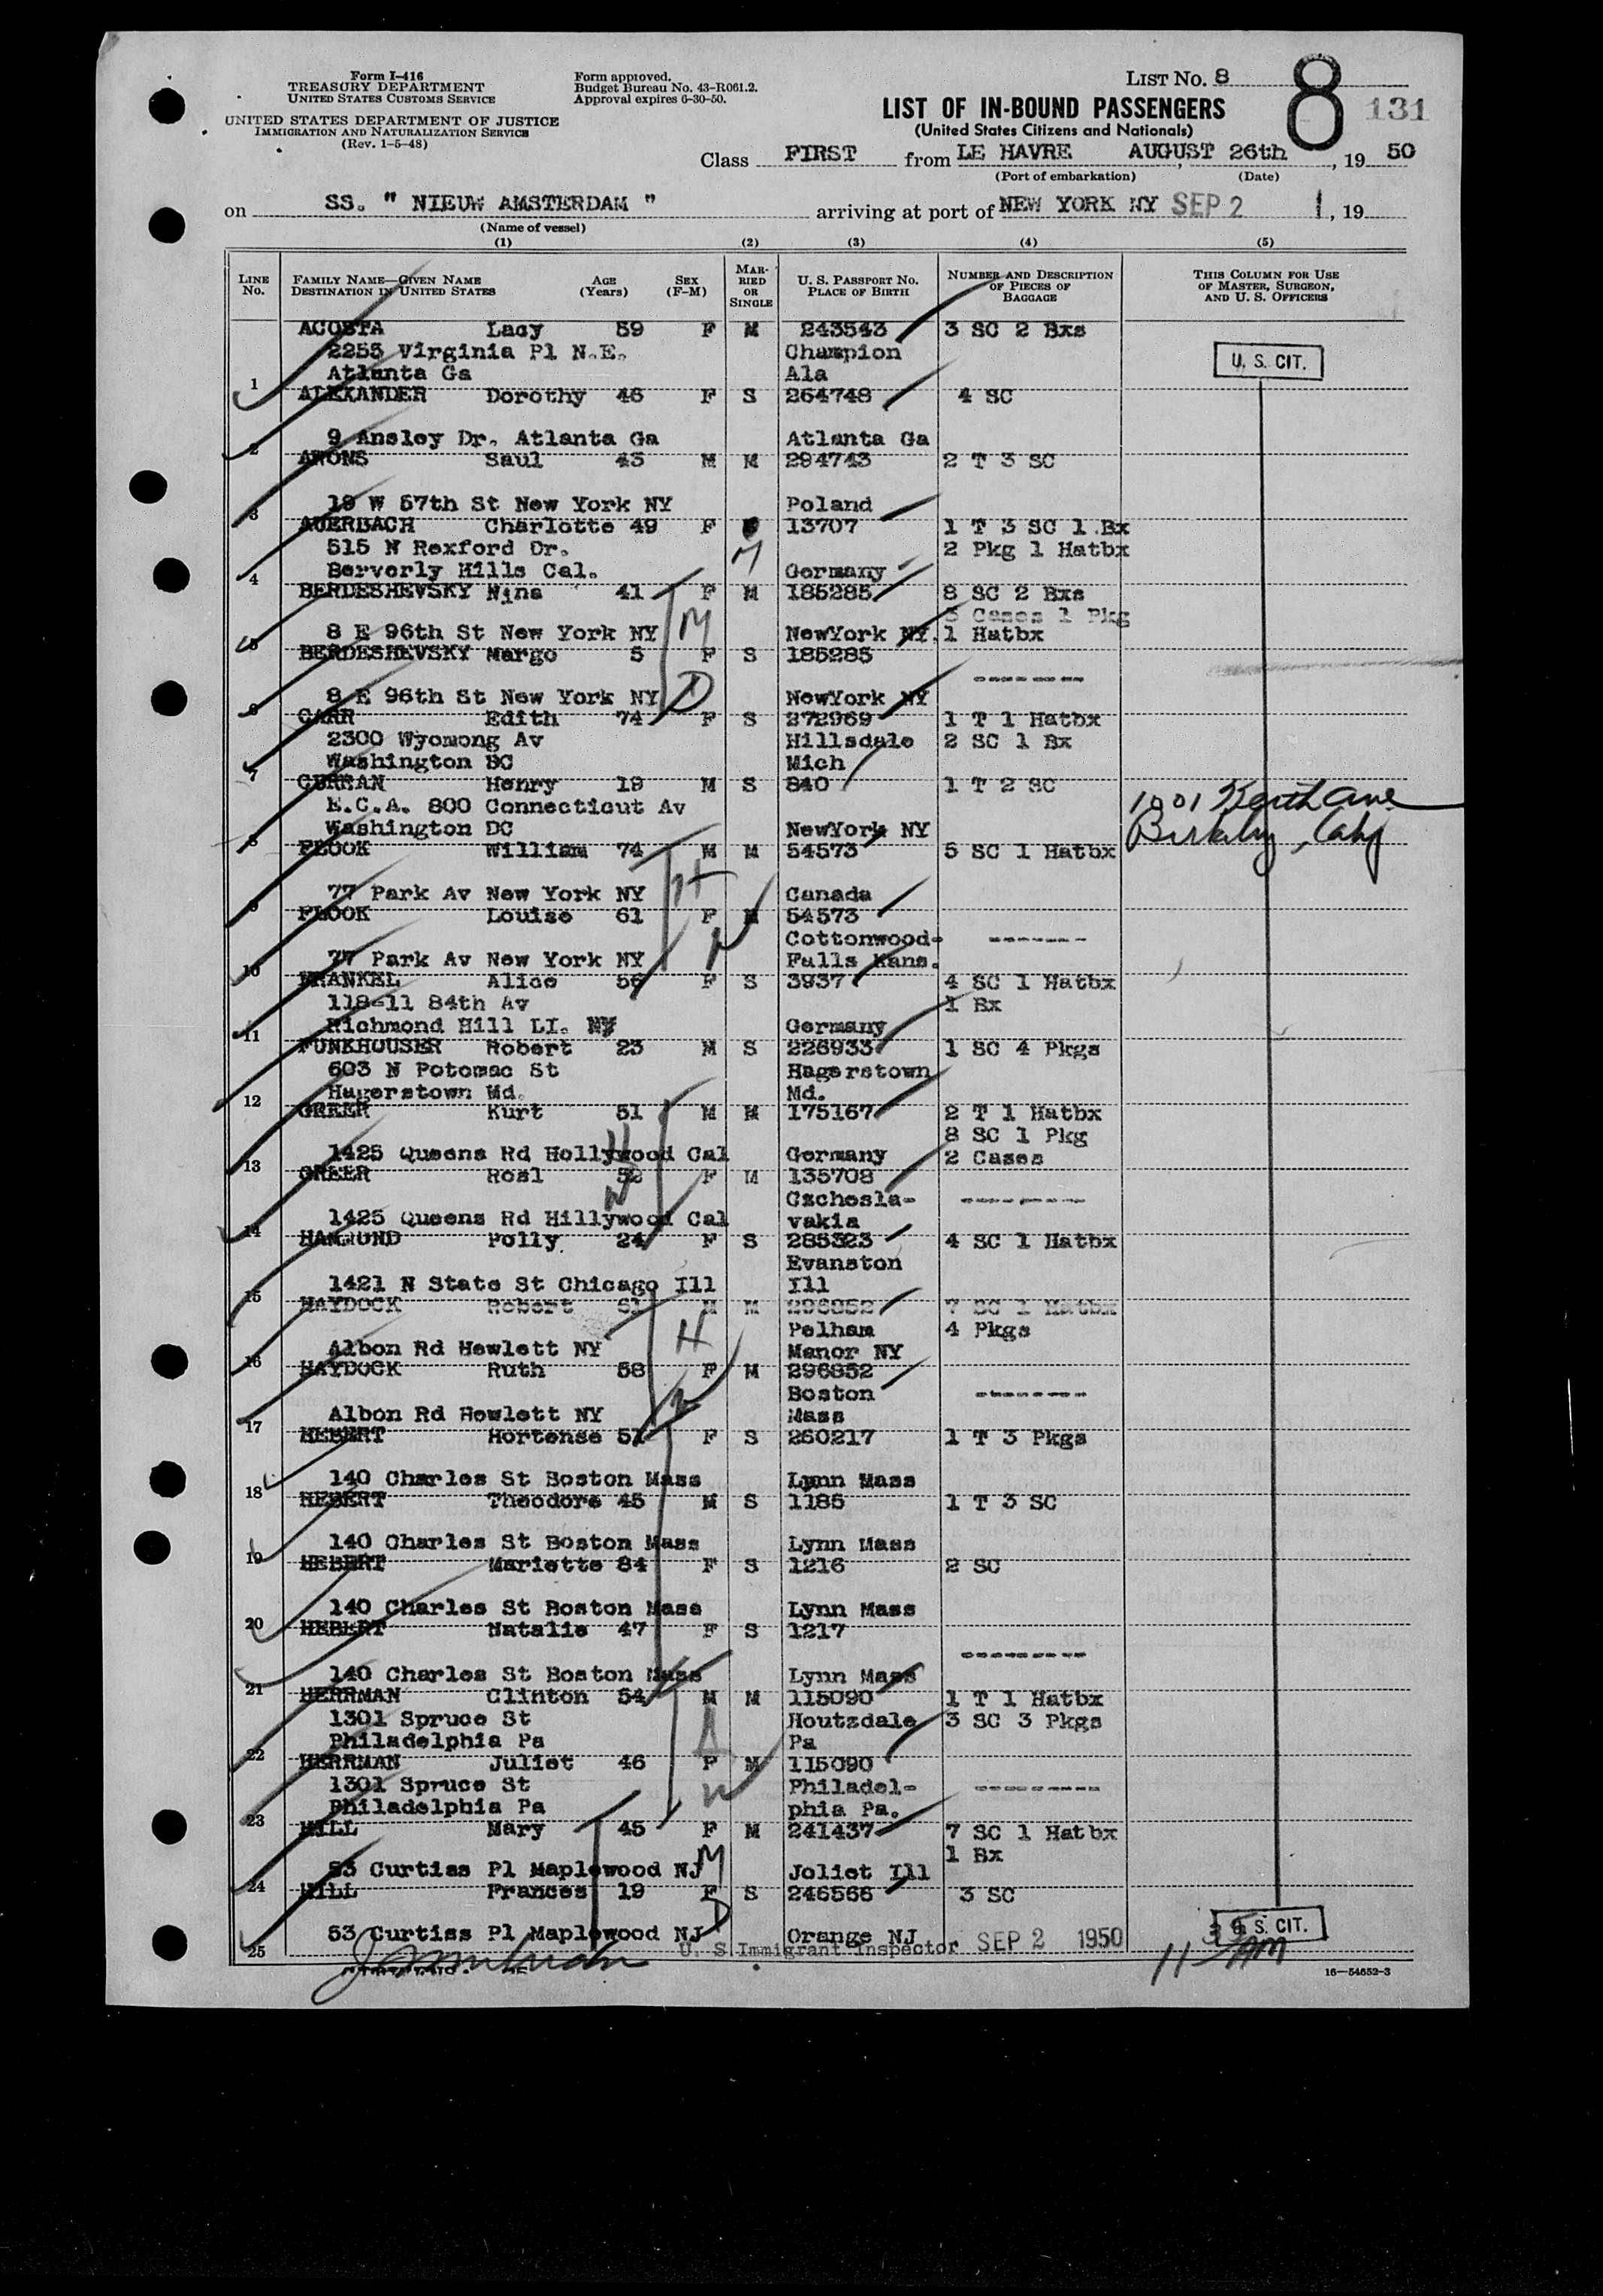 Form I-416
TREASURY DEPARTMENT
UNITED STATES CUSTOMS SERVICE
UNITED STATES DEPARTMENT OF JUSTICE
IMMIGRATION AND NATURALIZATION SERVICE
(Rev. 1-5-48)
Form approved.
Budget Bureau No. 43-R061.2.
Approval expires 6-30-50.
LIST NO. 8
8 131
LIST OF IN-BOUND PASSENGERS
(United States Citizens and Nationals)
Class FIRST from LE HAVRE AUGUST 26th, 19 50
(Port of embarkation) (Date)
on SS. " NIEUW AMSTERDAM " arriving at port of NEW YORK NY SEP 2 1, 19
(Name of vessel)
(1) (2) (3) (4) (5)
LINE No. FAMILY NAME—GIVEN NAME DESTINATION IN UNITED STATES AGE (Years) SEX (F-M) MARRIED OR SINGLE U. S. PASSPORT NO. PLACE OF BIRTH NUMBER AND DESCRIPTION OF PIECES OF BAGGAGE THIS COLUMN FOR USE OF MASTER, SURGEON, AND U. S. OFFICERS
ACOSTA Lacy 59 F M 243543 3 SC 2 Bxs
2255 Virginia Pl N.E. Champion
U. S. CIT.
1 Atlanta Ga Ala
ALEXANDER Dorothy 46 F S 264748 4 SC
2 9 Ansley Dr. Atlanta Ga Atlanta Ga
ARONS Saul 43 M M 294743 2 T 3 SC
3 19 W 57th St New York NY Poland
AUERBACH Charlotte 49 F M 13707 1 T 3 SC 1 Bx
515 N Rexford Dr. 2 Pkg 1 Hatbx
4 Berverly Hills Cal. Germany
BERDESHEVSKY Nina 41 F M 185285 8 SC 2 Bxs
3 Cases 1 Pkg
5 8 E 96th St New York NY M NewYork NY. 1 Hatbx
BERDESHEVSKY Margo 5 F S 185285
--------
6 8 E 96th St New York NY D NewYork NY
CARR Edith 74 F S 272969 1 T 1 Hatbx
2300 Wyomong Av Hillsdale 2 SC 1 Bx
7 Washington DC Mich
CURRAN Henry 19 M S 840 1 T 2 SC
E.C.A. 800 Connecticut Av
8 Washington DC NewYork NY
FLOOK William 74 M M 54573 5 SC 1 Hatbx
9 77 Park Av New York NY H Canada
FLOOK Louise 61 F M 54573
Cottonwood- -------
10 77 Park Av New York NY W Falls Kans.
FRANKEL Alice 56 F S 3937 4 SC 1 Hatbx
118-11 84th Av 1 Bx
11 Richmond Hill LI. NY Germany
FUNKHOUSER Robert 23 M S 226933 1 SC 4 Pkgs
603 N Potomac St Hagerstown
12 Hagerstown Md. Md.
GREER Kurt 51 M M 175167 2 T 1 Hatbx
8 SC 1 Pkg
13 1425 Queens Rd Hollywood Cal H Germany 2 Cases
GREER Rosl 52 F M 135708
W Czchesla- --------
14 1425 Queens Rd Hillywood Cal vakia
HAMMOND Polly 24 F S 285323 4 SC 1 Hatbx
Evanston
15 1421 N State St Chicago Ill Ill
HAYDOCK Robert 61 M M 296852 7 SC 1 Hatbx
H Pelham 4 Pkgs
16 Albon Rd Hewlett NY Manor NY
HAYDOCK Ruth 58 F M 296852
Boston --------
17 Albon Rd Hewlett NY W Mass
HEBERT Hortense 51 F S 260217 1 T 3 Pkgs
18 140 Charles St Boston Mass Lynn Mass
HEBERT Theodore 45 M S 1185 1 T 3 SC
19 140 Charles St Boston Mass Lynn Mass
HEBERT Mariette 84 F S 1216 2 SC
20 140 Charles St Boston Mass Lynn Mass
HEBERT Natalie 47 F S 1217
---------
21 140 Charles St Boston Mass Lynn Mass
HERRMAN Clinton 54 M M 115090 1 T 1 Hatbx
1301 Spruce St Houtzdale 3 SC 3 Pkgs
22 Philadelphia Pa Pa
HERRMAN Juliet 46 F M 115090
1301 Spruce St W Philadel- ---------
23 Philadelphia Pa phia Pa.
HILL Mary 45 F M 241437 7 SC 1 Hatbx
1 Bx
24 53 Curtiss Pl Maplewood NJ M Joliet Ill
HILL Frances 19 F S 246566 3 SC
D
25 53 Curtiss Pl Maplewood NJ Orange NJ
U. S. CIT.
U. S. Immigrant Inspector. SEP 2 1950 11 AM
16—54652-3